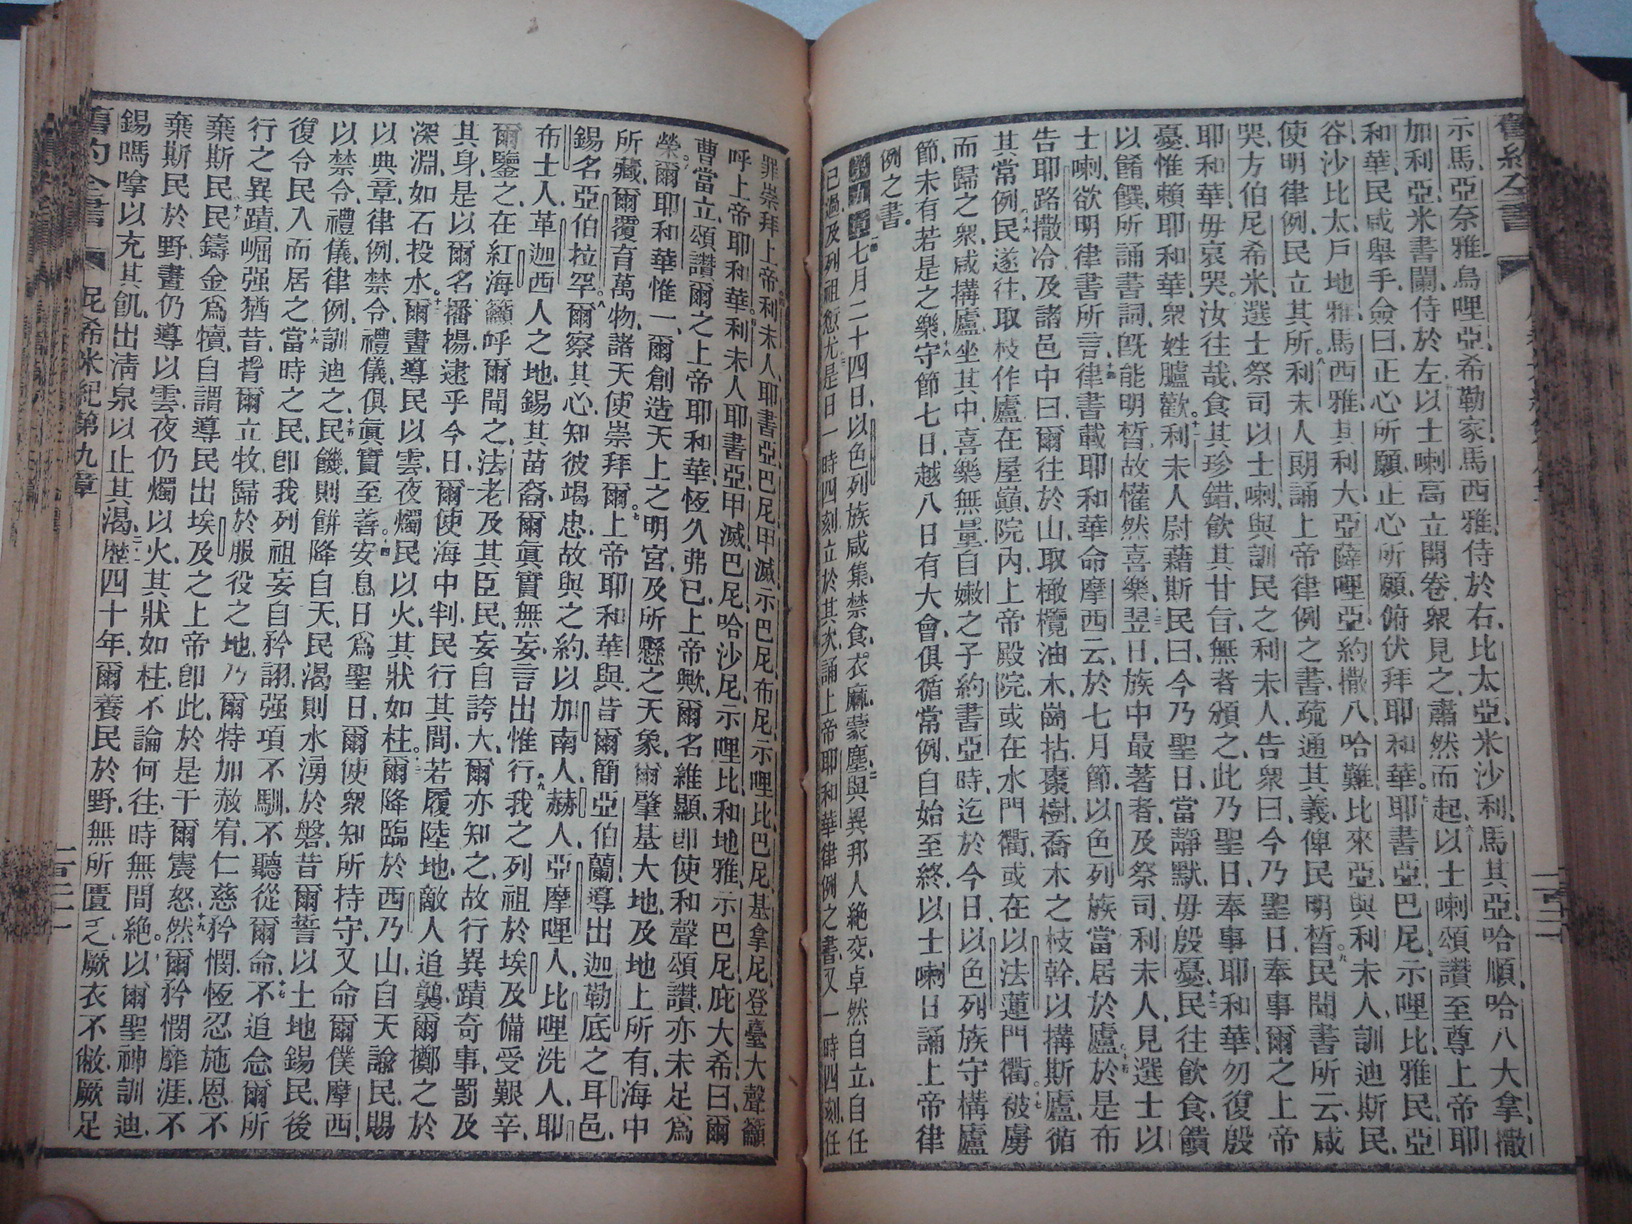 舊約全書
示馬亞奈雅烏哩亞希勒家馬西雅侍於右比太亞米沙利馬其亞哈順哈八大拿撒
加利亞米書闌侍於左以士喇高立開卷衆見之肅然而起以士喇頌讚至尊上帝耶
和華民咸舉手僉曰正心所願正心所願俯伏拜耶和華耶書亞巴尼示哩比雅民亞
谷沙比太戶地雅馬西雅其利大亞薩哩亞約撒八哈難比來亞與利未人訓迪斯民
使明律例民立其所利未人朗誦上帝律例之書疏通其義俾民明晳民聞書所云咸
哭方伯尼希米選士祭司以士喇與訓民之利未人告衆曰今乃聖日奉事爾之上帝
耶和華毋哀哭汝往哉食其珍錯飲其甘旨無者頒之此乃聖日奉事耶和華勿復殷
憂惟賴耶和華衆姓臚歡利未人尉藉斯民曰今乃聖日當靜默毋殷憂民往飲食饋
以餚饌所誦書詞旣能明晳故懽然喜樂翌日族中最著者及祭司利未人見選士以
士喇欲明律書所言律書載耶和華命摩西云於七月節以色列族當居於廬於是布
告耶路撒冷及諸邑中曰爾往於山取橄欖油木崗拈棗樹喬木之枝幹以搆斯廬循
其常例民遂往取枝作廬在屋巔院內上帝殿院或在水門衢或在以法蓮門衢被虜
而歸之衆咸搆廬坐其中喜樂無量自嫩之子約書亞時迄於今日以色列族守搆廬
節未有若是之樂守節七日越八日有大會俱循常例自始至終以士喇日誦上帝律
例之書
第九章七月二十四日以色列族咸集禁食衣麻蒙塵與異邦人絶交卓然自立自任
已過及列祖愆尤是日一時四刻立於其次誦上帝耶和華律例之書又一時四刻任
罪崇拜上帝利未人耶書亞巴尼甲滅示巴尼布尼示哩比巴尼基拿尼登臺大聲籲
呼上帝耶和華利未人耶書亞甲滅巴尼哈沙尼示哩比和地雅示巴尼庇大希曰爾
曹當立頌讚爾之上帝耶和華恆久弗已上帝歟爾名維顯卽使和聲頌讚亦未足爲
榮爾耶和華惟一爾創造天上之明宮及所懸之天象爾肇基大地及地上所有海中
所藏爾覆育萬物諸天使崇拜爾上帝耶和華與昔爾簡亞伯蘭導出迦勒底之耳邑
錫名亞伯拉罕爾察其心知彼竭忠故與之約以加南人赫人亞摩哩人比哩洗人耶
布士人革迦西人之地錫其苗裔爾眞實無妄言出惟行我之列祖於埃及備受艱辛
爾鑒之在紅海籲呼爾聞之法老及其臣民妄自誇大爾亦知之故行異蹟奇事罰及
其身是以爾名播揚逮乎今日爾使海中判民行其間若履陸地敵人追襲爾擲之於
深淵如石投水爾晝導民以雲夜燭民以火其狀如柱爾降臨於西乃山自天諭民賜
以典章律例禁令禮儀俱眞實至善安息日爲聖日爾使衆知所持守又命爾僕摩西
以禁令禮儀律例訓迪之民饑則餅降自天民渴則水湧於磐昔爾誓以土地錫民後
復令民入而居之當時之民卽我列祖妄自矜詡强項不馴不聽從爾命不追念爾所
行之異蹟崛强猶昔背爾立牧歸於服役之地乃爾特加赦宥仁慈矜憫恆忍施恩不
棄斯民民鑄金爲犢自謂導民出埃及之上帝卽此於是干爾震怒然爾矜憫靡涯不
棄斯民於野晝仍導以雲夜仍燭以火其狀如柱不論何往時無間絶以爾聖神訓迪
錫嗎嗱以充其飢出淸泉以止其渴歷四十年爾養民於野無所匱乏厥衣不敝厥足
舊約全書 尼希米紀第九章